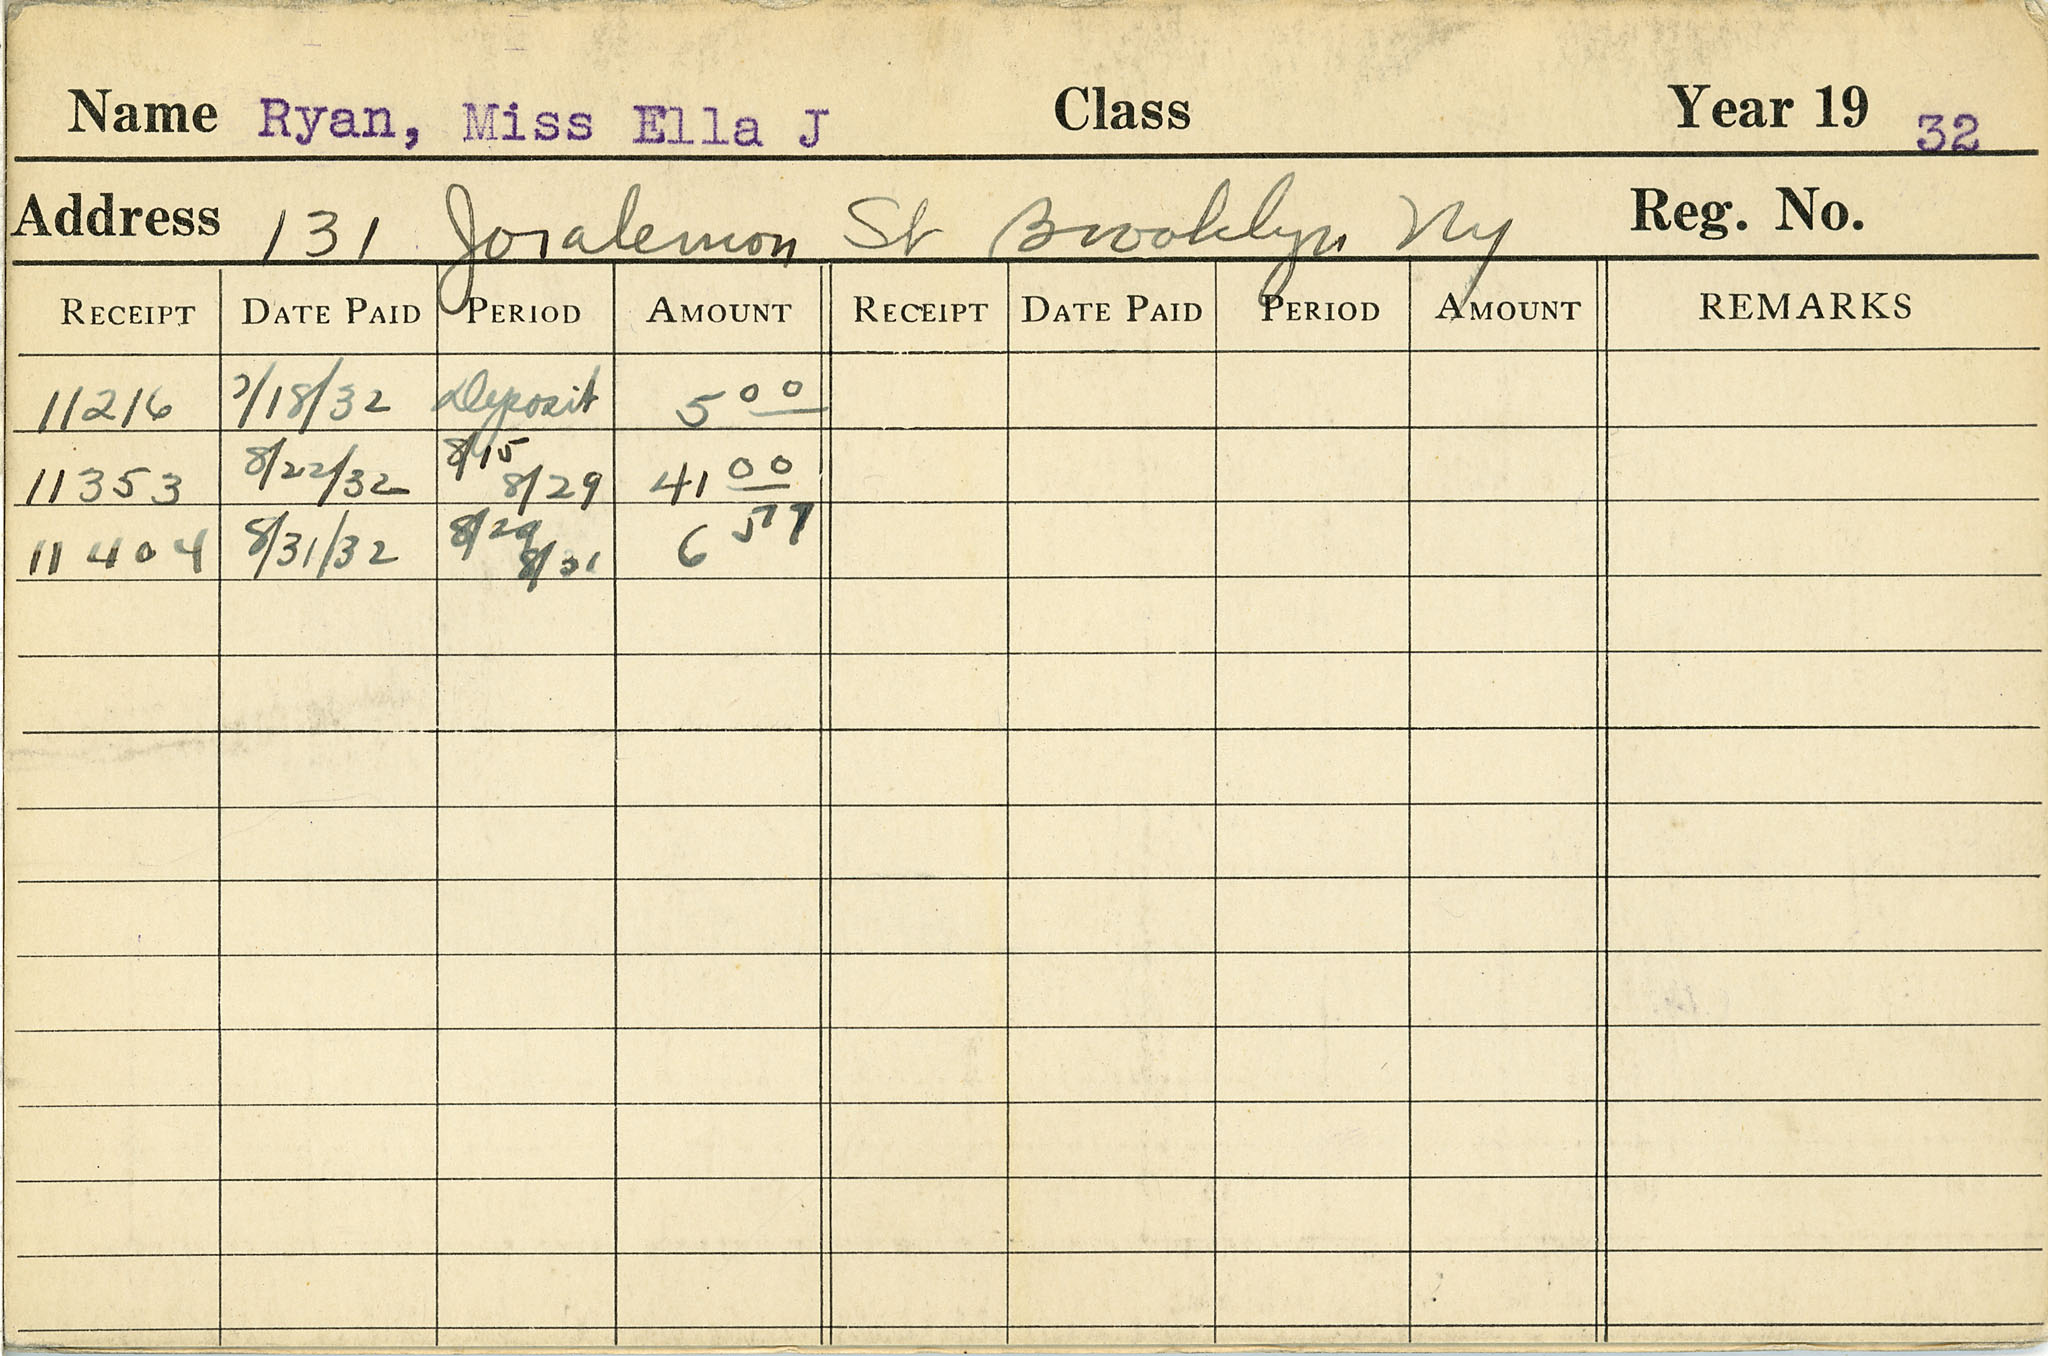 Name Ryan, Miss Ella J Class Year 19 32
Address 131 Joralemon St Brooklyn Ny Reg. No.
RECEIPT DATE PAID PERIOD AMOUNT RECEIPT DATE PAID PERIOD AMOUNT REMARKS
11216 7/18/32 Deposit 5 00
11353 8/22/32 8/15 8/29 41 00
11404 8/31/32 8/29 8/31 6 57